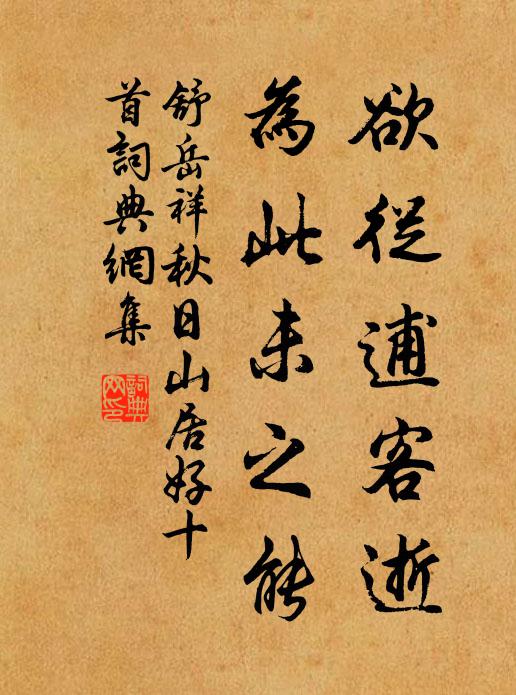 欲從逋客逝
為此未之能
舒岳祥秋日山居好十
首詞典網集
詞典
网印